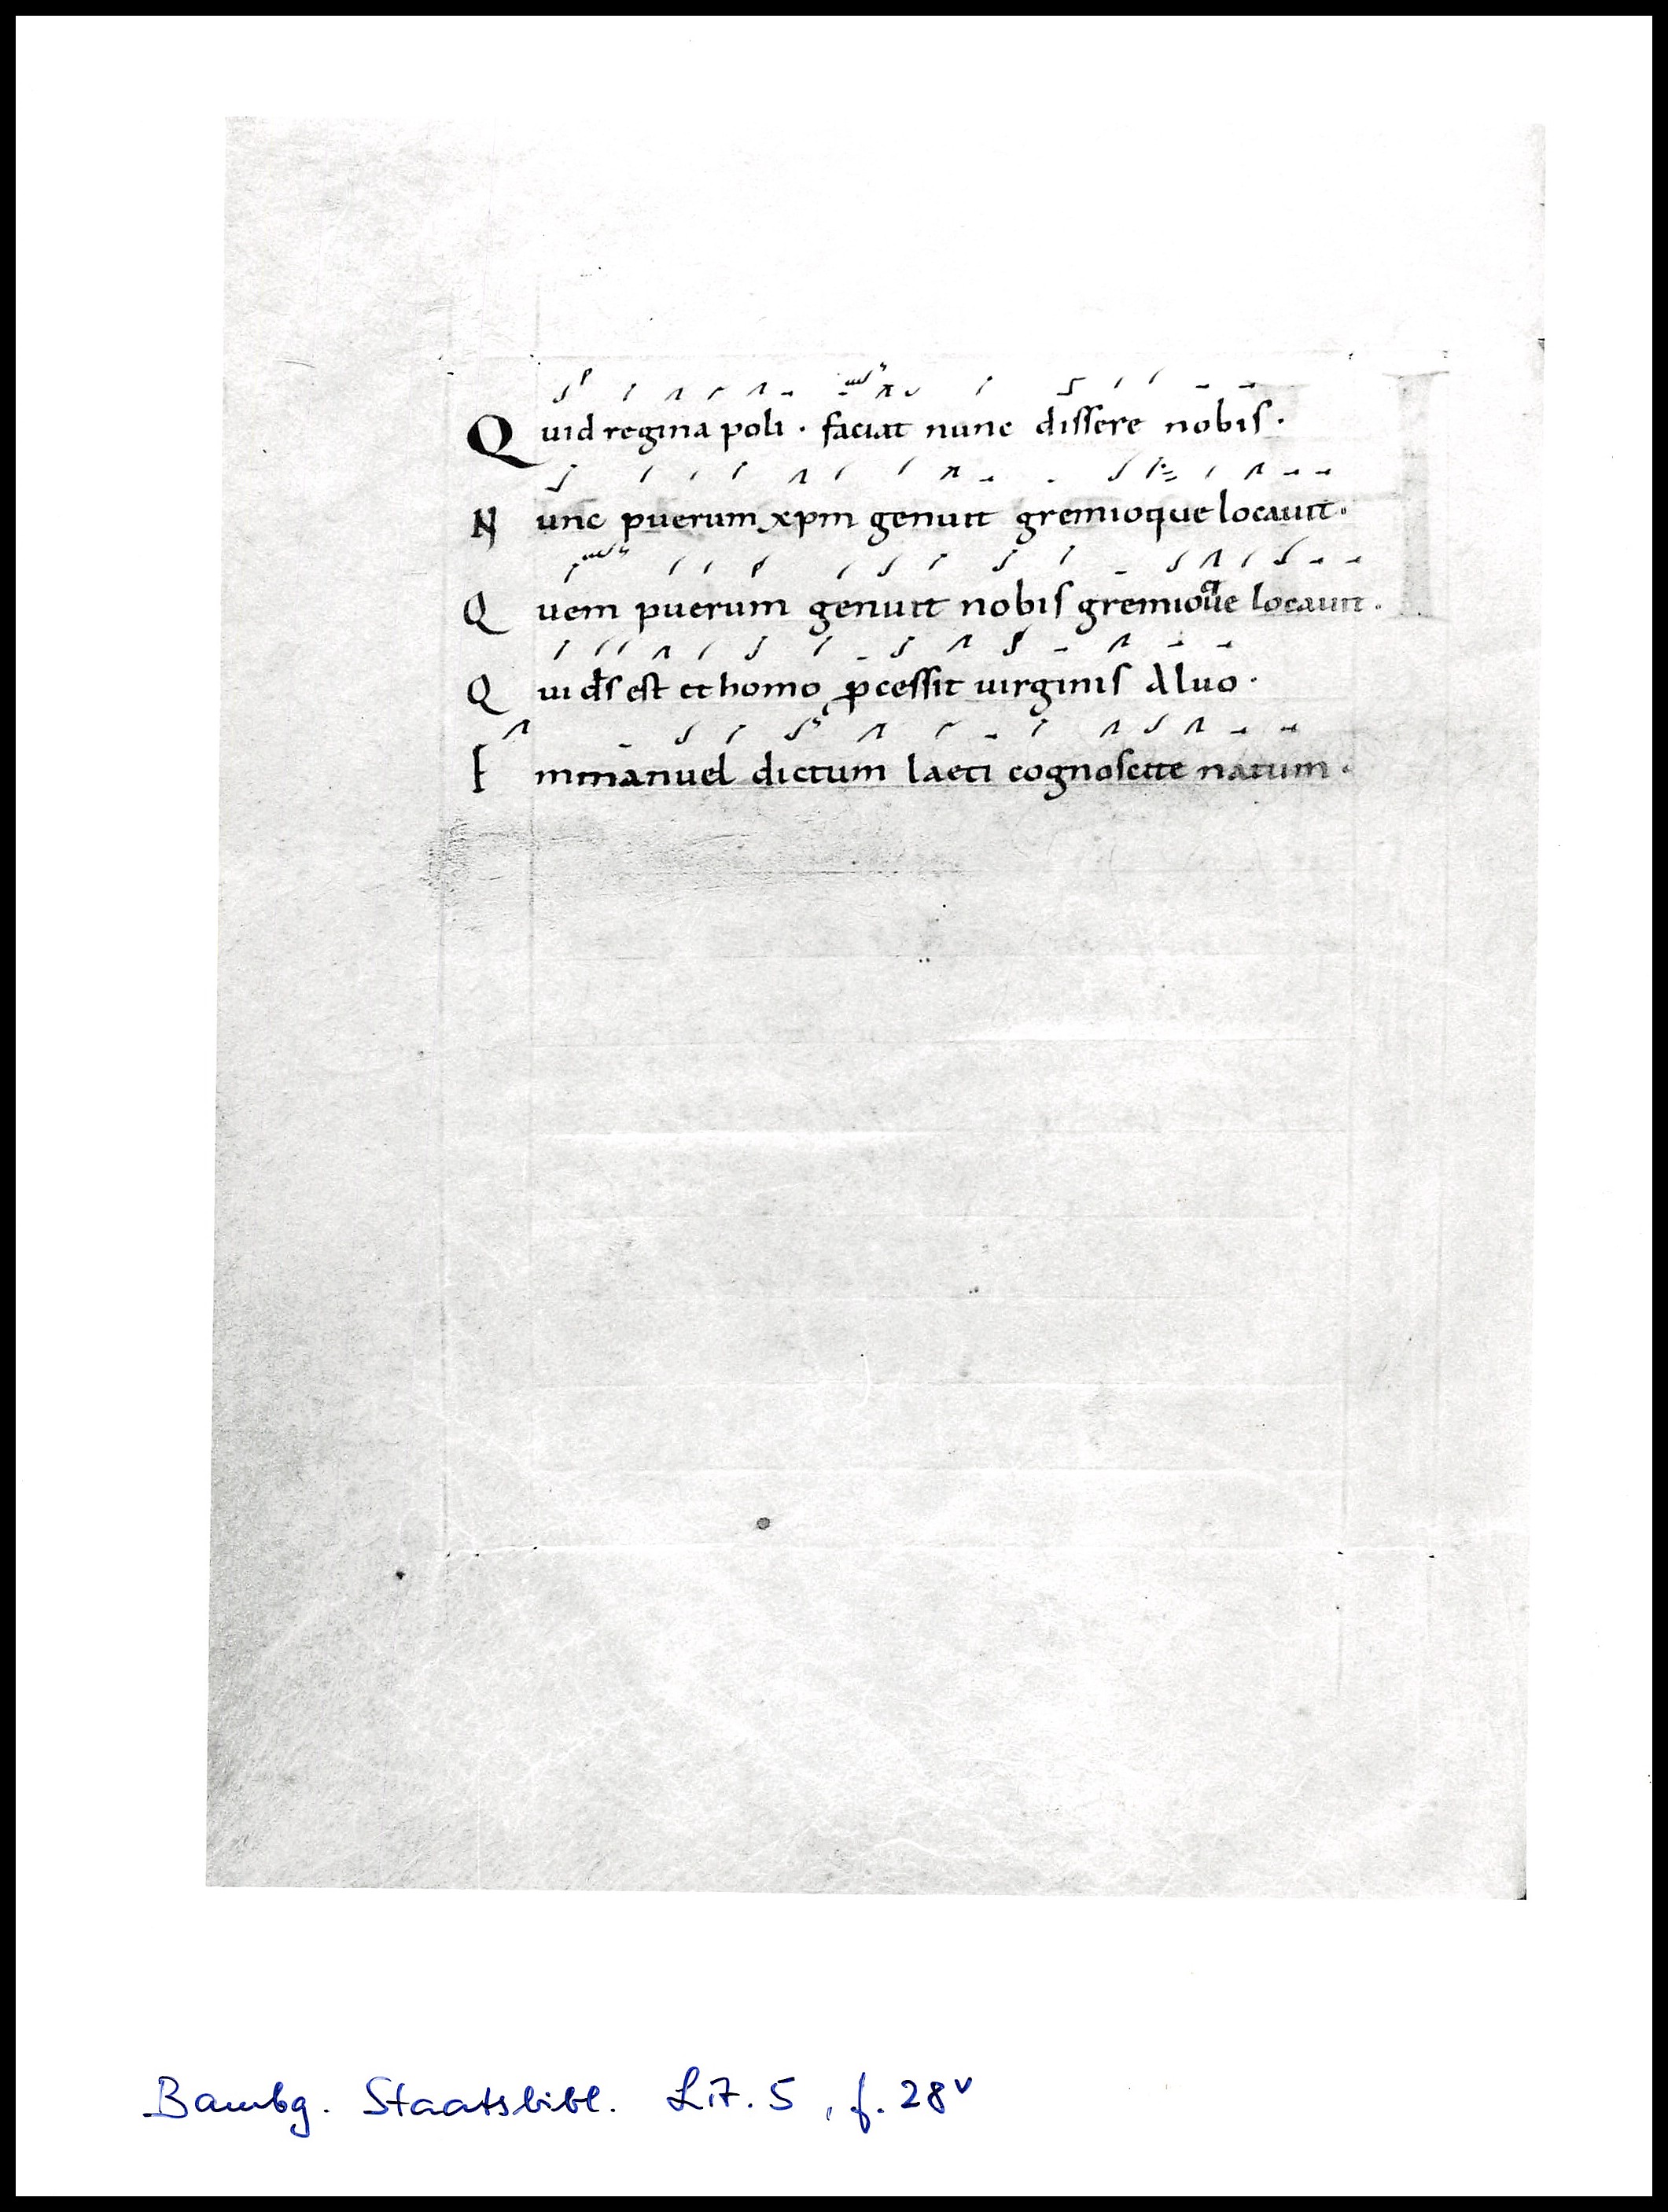 Quid regina poli · faciat nunc dissere nobis ·
Nunc puerum xpm genuit gremioque locauit ·
Quem puerum genuit nobis gremioque locauit ·
Qui d̅s est et homo ꝓcessit uirginis Aluo ·
Emmanuel dictum laeti cognoscite natum ·
Bambg. Staatsbibl. Lit. 5, f. 28v